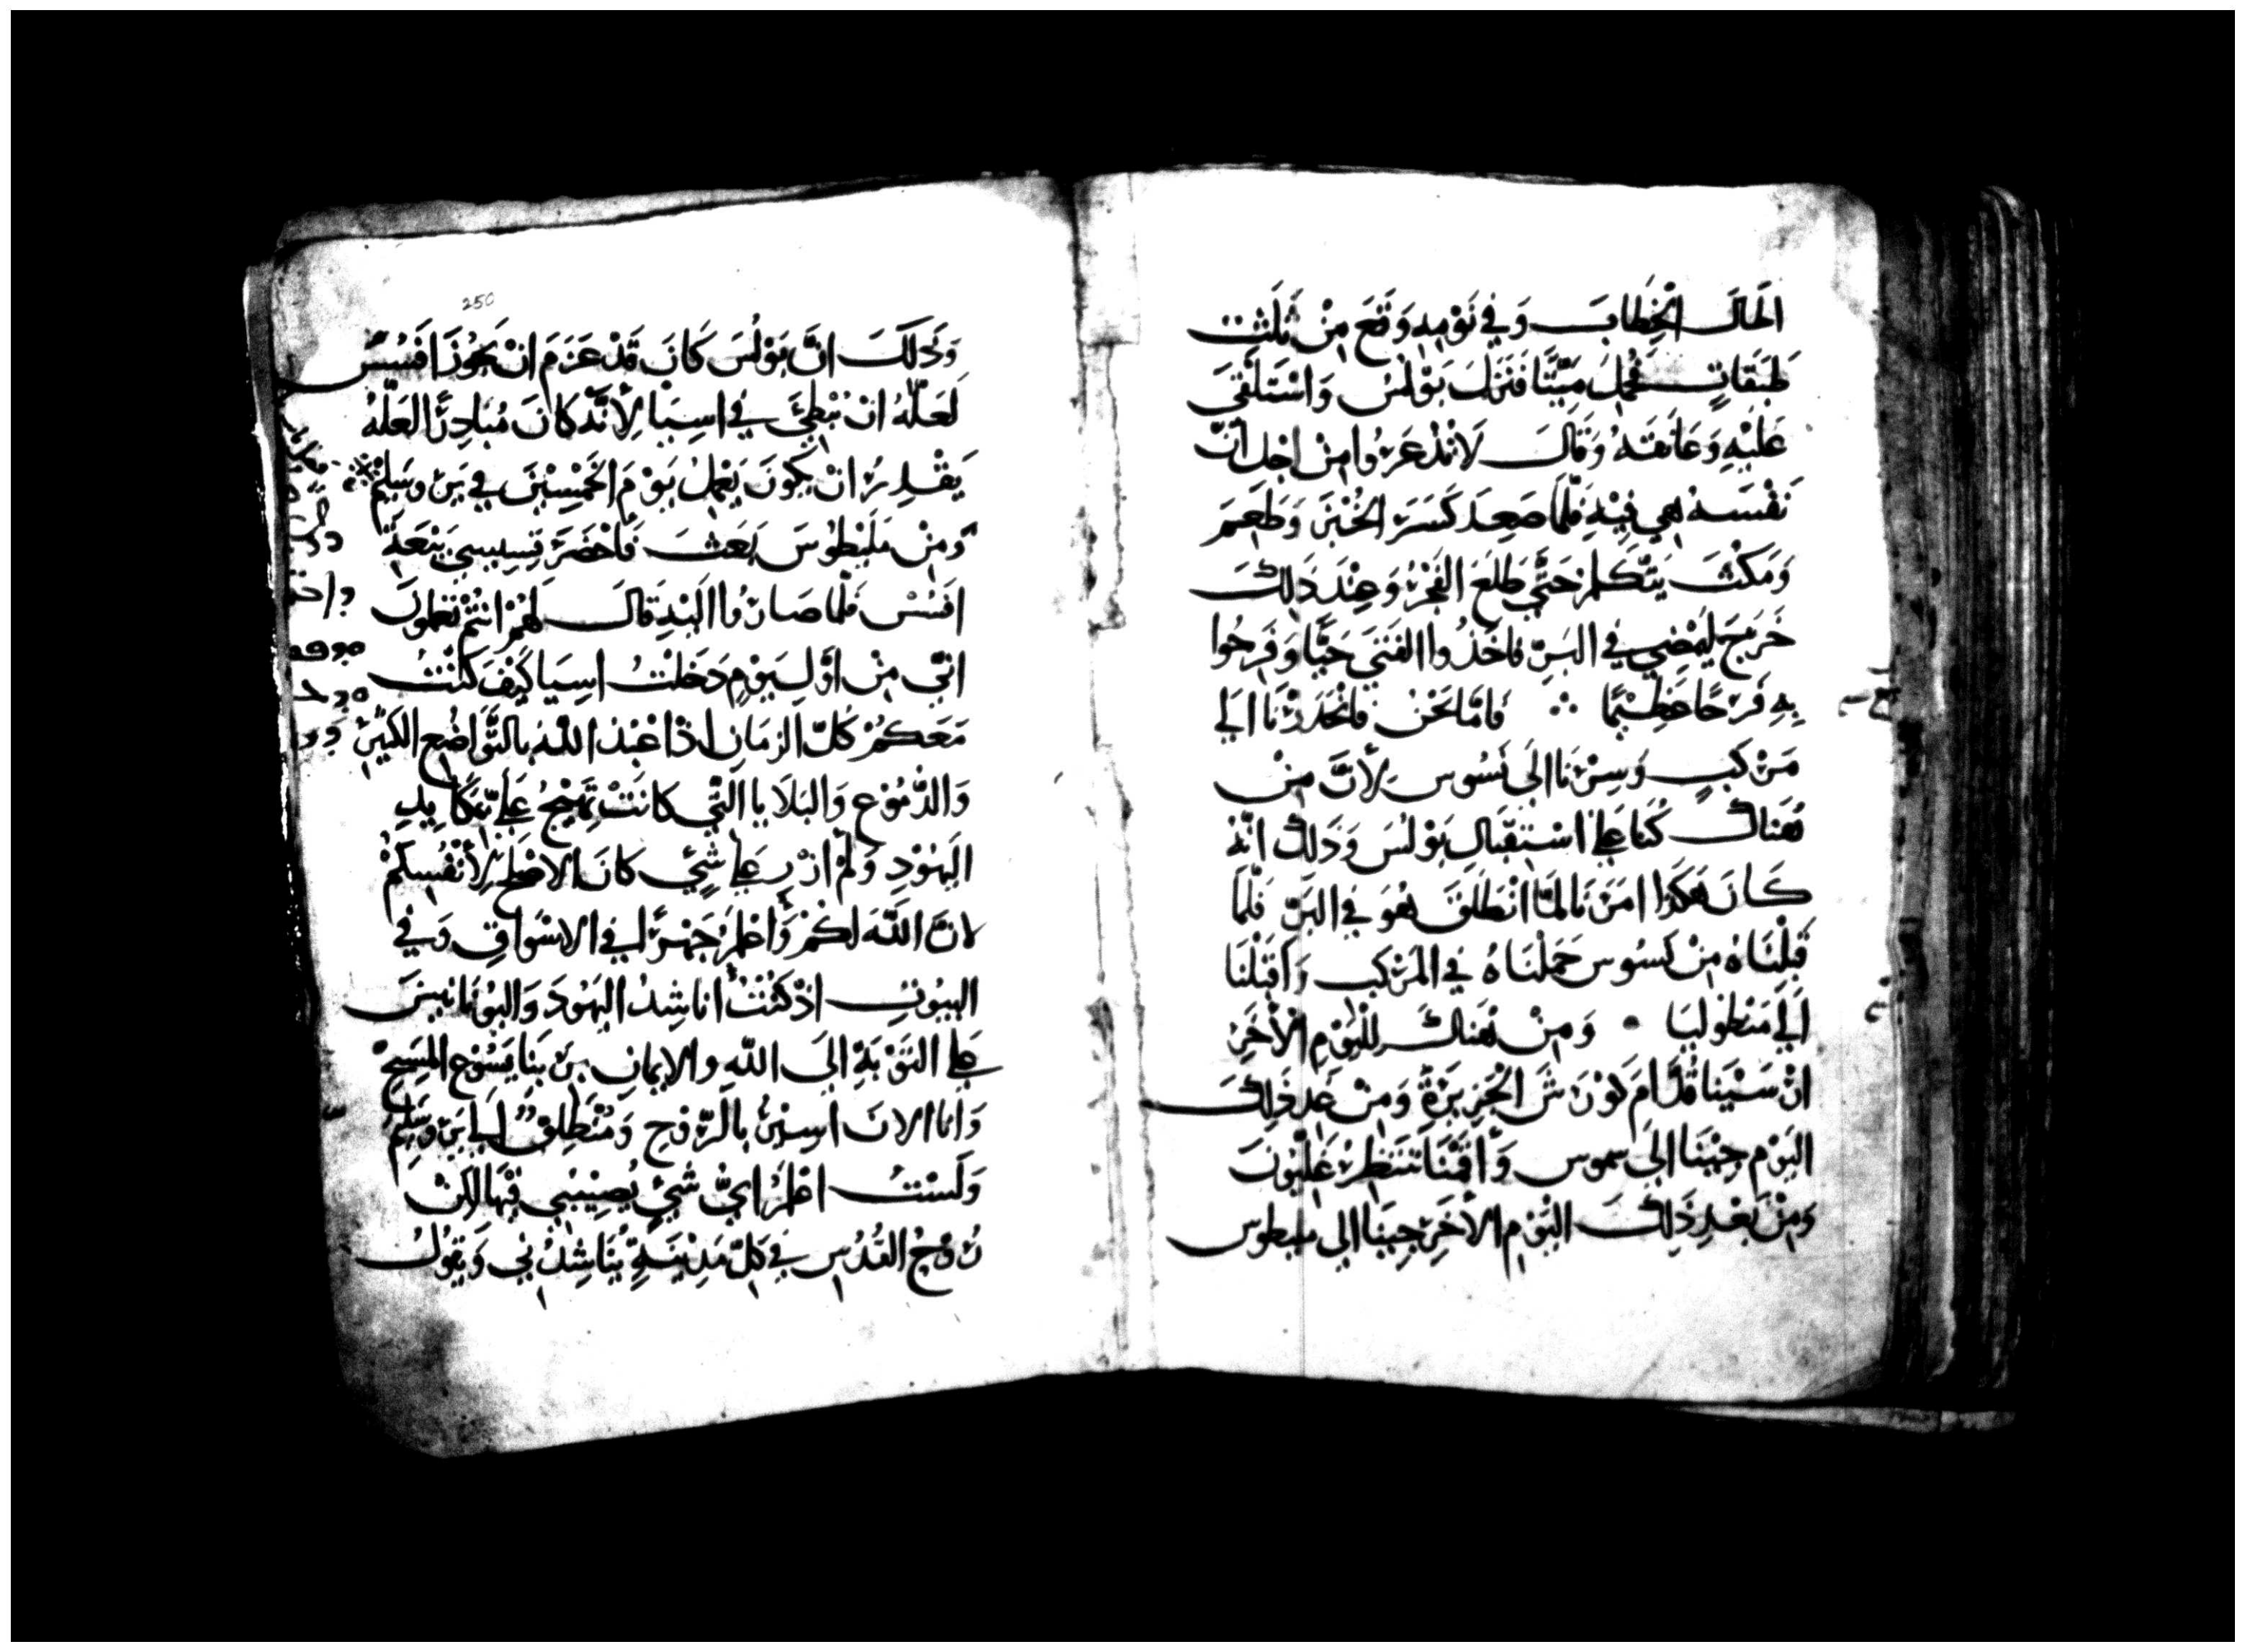 اَطَالَ الْخِطَابَ وَفِي نَوْمِهِ وَقَعَ مِنْ ثَلَثِ
طَبَقَاتٍ فَحُمِلَ مَيِّتًا فَنَزَلَ بَوْلُسُ وَاسْتَلْقَيَ
عَلَيْهِ وَعَانَقَهُ وَقَالَ لَا تُذْعَرُوا مِنْ اجْلِ انَّ
نَفْسَهُ هِيَ فِيْهِ فَلَمَا صَعِدَ كَسَرَ الخُبْزَ وَطَعِمَ
وَمَكَثَ يَتَّكَلمُ حَتَّي طَلَعَ الفَجْرُ وَعِنْدَ ذَلِكَ
خَرَجَ لِيَمْضِي فِي البَرِّ فاخَذُوا الفَتَيَ حَيًّا وَفَرِحُوا
بِهِ فَرْحًا عَظِيْمًا ∴ فَامَّا نَحْنُ فَانْحَدَرْنَا الي
مَرْكَبٍ وَسِرْنَا الَي تَسُوس لِأَنَّ مِنْ
هُنَاكَ كُنَا عَلِي اسْتِقْبَالِ بَوْلُسَ وَذَلِكَ انَّهُ
كَانَ هَكَذا امَرَنَا لَمَّا انْطَلَقَ هُوَ فِي البَرِّ فَلَمَا
قَبِلْنَاهُ مِنْ كَسُوس حَمَلْنَاهُ فِي المَرْكَبِ وَأَقْبَلْنَا
اَلِي مَنْطُولِيَا • وَمِنْ هُنَاكَ لِلْيَوْمِ الْأَخَرِ
انْ سَيْنَا قُدَّامَ كَوْرَشَ الْجَزِيْرَةِ وَمِنْ غَدِ ذَلِكَ
اليَوْمِ جِيْنَا الَي سموس وَأَقَمْنَا نَنْتَظِرُ غَلِيُونَ
وَمِنْ بَعْدِ ذَلِكَ اليَوْمِ الأَخَرِ جِيْنَا الي مليطوس
250
وَذَلِكَ انَّ بَوْلُسَ كَانَ قَدْ عَزَمَ انْ يَجُوْزَ افَسُسَ
لَعَلَّهُ انْ يُبْطِيَ فِي اسِيَا لِأَنَّهُ كَانَ مُبَادِرًا لَعَلَّهُ
يَقْدِرُ انْ يَكُونَ يَعْمِلُ يَوْمَ الخَمْسِيْنَ فِي يَرُوسَلِيْمَ
وَمِنْ مَلِيْطُوْسَ بَعَثَ فَأَحْضَرَ قِسِيسِي بَيْعَةِ
افَسُسَ فَلَمَّا صَارُوا الَيْهِ قَالَ لَهُمْ انْتُمْ تَعْلَمُونَ
انِّي مِنْ اوَّلِ يَوْمٍ دَخَلْتُ اسِيَا كَيْفَ كُنْتُ
مَعَكُمْ كُلَّ الزمَانِ اذَا عْبُدُ اللَّهَ بِالتَّوَاضُعِ الكَثِيْرِ
وَالدُّمُوْعِ وَالبَلَايَا الَّتِي كانَتْ تَهِيْجُ عَلَيَّ بِمَكَايِدِ
اليَهُوْدِ وَلَمْ ازْرِ عَلي شَيٍْ كَانَ الاصْلَحَ لِأَنْفُسِكُمْ
لانَّ اللَّهَ لَكُمْ وَأَظهَرَ جَهْرًا فِي الاسْوَاقِ وَفِي
البيُوتِ اذْ كُنْتُ أناشِدُ اليَهُودَ وَاليُوْنَانِيينَ
عَلي التَوْبَةِ الَي اللَّهِ والايمَانِ بِرَبِنَا يَسُوْع المَسِيحْ
وَأنا الانَ اسِيْرٌ بِالرُّوْحِ وَمُنْطَلِقٌ الَي يَرُوسَلِيْمَ
وَلَسْتُ اعْلَمُ ايُّ شَيْءٍ يُصِيْبُنِي فِيْهَا لكِنْ
رُوْحُ القُدُسِ فِي كُلِّ مَدِيْنَةٍ يُنَاشِدُنِي وَيَقُوْلُ